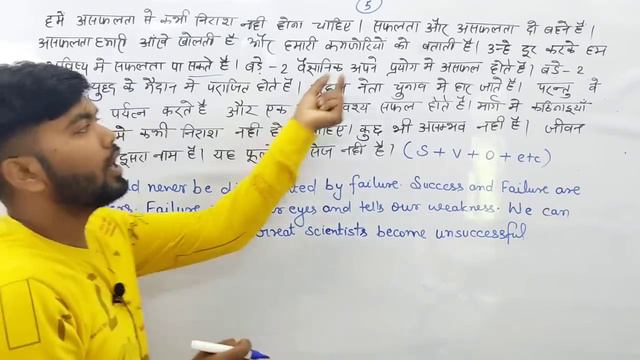 5
हमें असफलता से कभी निराश नहीं होना चाहिए। सफलता और असफलता दो बहने हैं।
असफलता हमारी आँखे खोलती है और हमारी कमजोरियों को बताती है। उन्हे दूर करके हम
में सफलता पा सकते है। बड़े -2 वैज्ञानिक अपने प्रयोग में असफल होते हैं। बड़े -2
युद्ध के मैदान में पराजित होते हैं। नेता चुनाव में हार जाते है। परन्तु वे
पर्यत्न करते है और एक वश्य सफल होते हैं। मार्ग में कठिनाइयाँ
मे कभी निराश नहीं हो चाहिए। कुछ भी असम्भव नहीं है। जीवन
दूसरा नाम है। यह फूलो सेज नहीं है। (S + V + O + etc)
never be di ted by failure. Success and Failure are
Failure eyes and tells our weakness. We can
Great scientists become unsuccessful